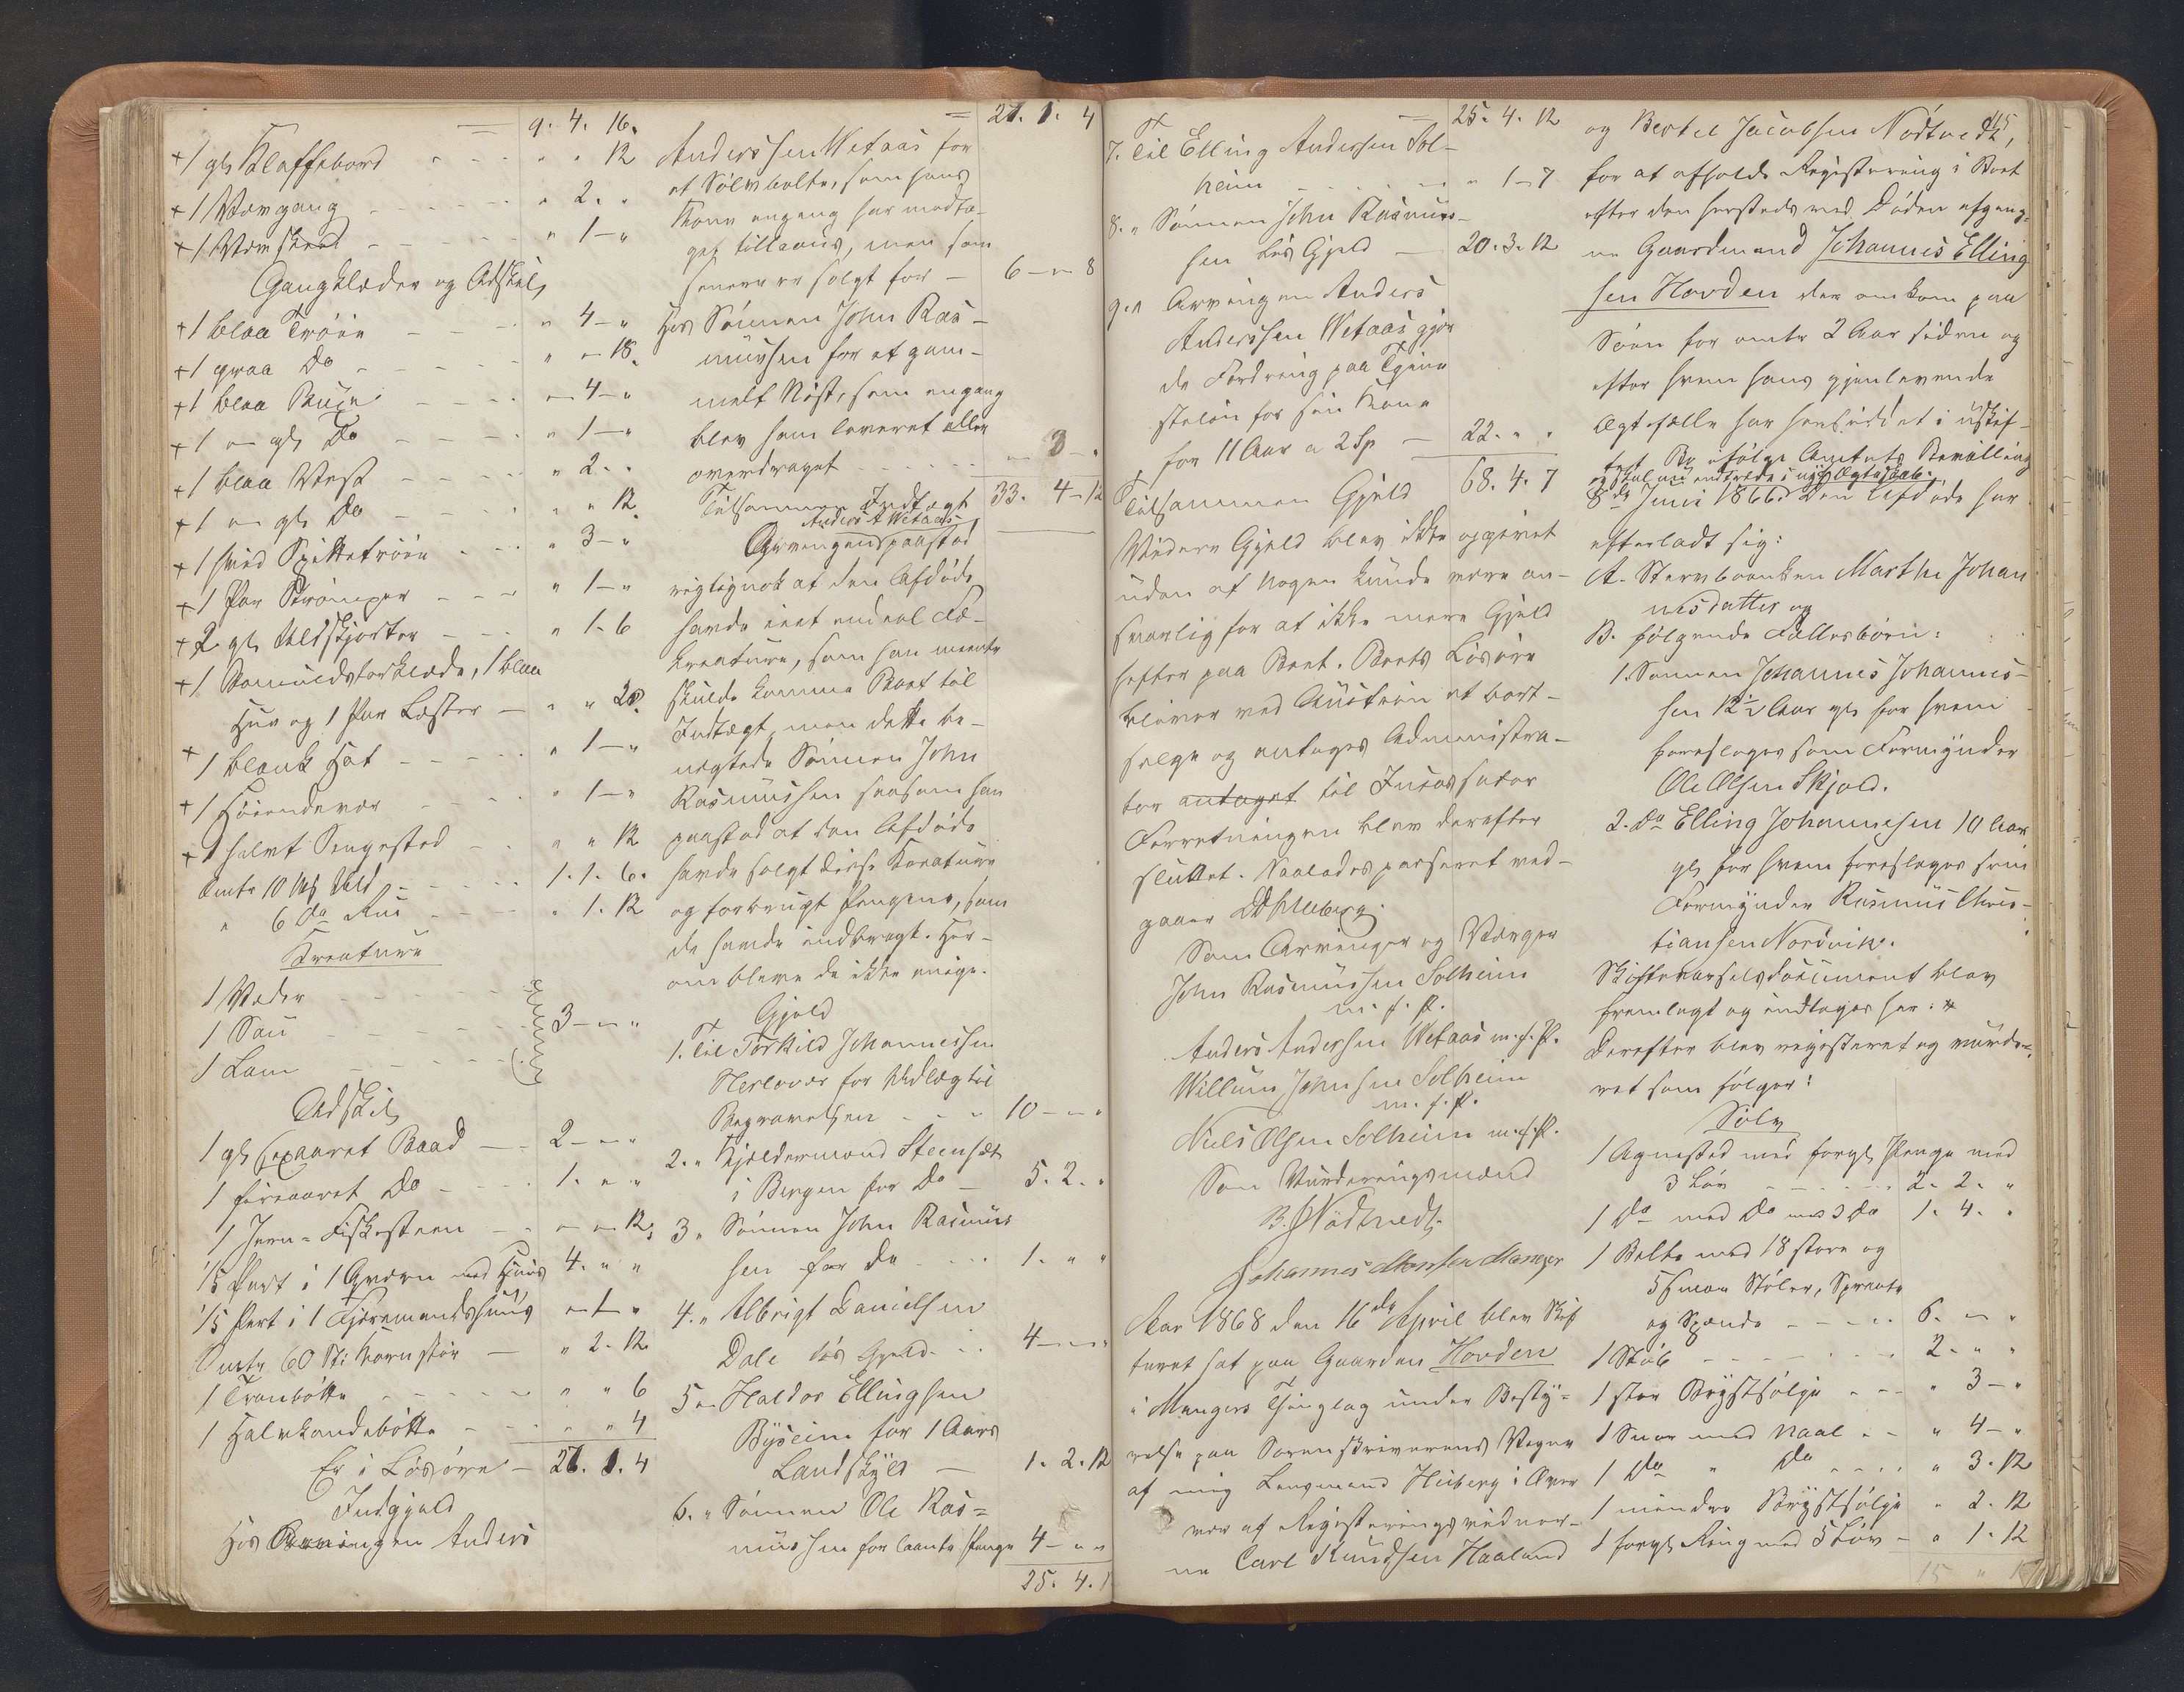 = 9. 4. 16.
+ 1 gl. Klaffebord - - - " " 12
+ 1 Vævgang - - - " 2. "
+ 1 Vævskeed - - - " 1 - "
Gangklæder og Adskil.
+ 1 blaa Trøie - - - " 4 - "
+ 1 graa Do - - - " " 18.
+ 1 blaa Buxe - - - " 4 - "
+ 1 " gl. Do - - - " 1 - "
+ 1 blaa Vest - - - " 2. "
+ 1 " gl. Do - - - " " 12
+ 1 hvid Spittetrøie - - - " 3 - "
+ 1 Par Strømper - - - " 1 - "
+ 2 gl. Uldskjorter - - - " 1. 6
+ 1 Bomuldstørklæde, 1 blaa
Hue og 1 Par Læster - " " 20.
+ 1 blank Hat - - - " 1 - "
+ 1 Høiendevar - - - " 1 - "
+ 1 halvt Sengested - - " " 12
Omtr 10 Mk Uld - - - 1. 1. 6.
" 6 do Rui - - - " 1. 12
Kreature
1 Væder - - -
1 Sau - - - 3 - - "
1 Lam - -
Adskil.
1 gl. sexaaret Baad - - 2 - - "
1 fireaaret Do - - - 1. " "
1 Jern-Fiskesteen - - " " 12.
1/5 Part i 1 Qværn med Huus 4. " "
1/5 Part i 1 Fjøremandshuus " 1 "
Omtr 60 St: Kornstør - " 2. 12
1 Tranbøtte - - - " " 6
1 Halvkandebøtte - - " " 4
Er i Løsøre - 21. 1. 4
Indgjæld
Hos Arvingen Anders
= 21. 1. 4
Anderssen Wetaas for
et Sølvbelte, som hans
Kone engang har modta-
get tillaans, men som
senere er solgt for - 6 - " 8
Hos Sønnen John Ras-
mussen for et gam-
melt Nøst, som engang
blev ham leveret eller
overdraget - - - " 3 - "
Tilsammen Indtægt 33. 4 - 12
Anders A Wetaas
Arvingens paastod
rigtignok at den Afdøde
havde eiet endeel Fæ-
kreature, som han meente
skulde komme Boet til
Indtægt, men dette be-
nægtede Sønnen John
Rasmussen saasom han
paastod at den Afdøde
havde solgt disse Kreature
og forbrugt Pengene, som
de havde indbragt. Her-
om bleve de ikke enige.
Gjæld
1. Til Torkild Johannessen
Herløvær for Udlæg til
Begravelsen - - - 10 - - "
2. " Kjeldermand Steensæt
i Bergen for Do - 5. 2. "
3 " Sønnen John Rasmus
sen for Do - - - 1. " "
4. " Albrigt Danielsen
Dale løs Gjæld - - 4 - - "
5 " Haldor Ellingsen
Byseim for 1 Aars
Landskyld - 1. 2. 12
6. " Sønnen Ole Ras=
mussen for laante Penge 4 - " "
25. 4. 1
= 25. 4. 12
7. Til Elling Andersen Sol-
heim - - - " 1 - 7
8. " Sønnen John Rasmus-
sen løs Gjæld - 20. 3. 12
9. " Arvingen Anders
Anderssen Wetaas gjor
de Fordring paa Tjene
steløn for sin Kone
for 11 Aar a 2 Sp - 22. " "
Tilsammen Gjæld 68. 4. 7
Videre Gjæld blev ikke opgivet
uden at nogen kunde være an-
svarlig for at ikke mere Gjæld
hefter paa Boet. Boets Løsøre
bliver ved Auction at bort-
sælge og antages Administra-
tor antaget til Incassator
Forretningen blev derefter
sluttet. Naalades passeret ved-
gaaer DHMeberg.
Som Arvinger og Værger
John Rasmussen Solheim
m. f. P.
Anders Andersen Wetaas m. f. P.
Willum Johnsen Solheim
m. f. P.
Niels Olsen Solheim m. f. P.
Som Vurderingsmænd
B. J Nødtvedt.
Johannes Monsen Manger
Aar 1868 den 16de April blev Skif
teret sat paa Gaarden Hovden
i Mangers Thinglag under Besty=
relse paa Sorenskriverens Vegne
af mig Lensmand Heiberg i Over
vær af Registeringsvidner-
ne Carl Knudsen Haaland
115
og Bertel Jacobsen Nødtvedt,
for at afholde Registrering i Boet
efter den hersteds ved Døden afgang-
ne Gaardmand Johannes Elling
sen Hovden der omkom paa
Søen for omtr 2 Aar siden og
efter hvem hans gjenlevende
Ægtefælle har hensiddet i uskif-
tet Bo ifølge Amtets Bevilling
og skal nu indtræde i nyt Ægteskab.
8de Juni 1866. Den Afdøde har
efterladt sig:
A. Stervboenken Marthe Johan
nesdatter og
B. følgende Fællesbørn:
1. Sønnen Johannes Johannes-
sen 12 1/2 Aar gl. for hvem
foreslages som Formynder
Ole Olsen Skjold.
2. Do Elling Johannesen 10 Aar
gl. for hvem foreslages som
Formynder Rasmus Chris-
tiansen Nordvik.
Skiftevarselsdocument blev
fremlagt og indtages her: *
Derefter blev registeret og vurde-
ret som følger:
Sølv
1 Agnested med forgl. Penge med
3 Løv - - - 2. 2. "
1 Do med Do med 3 Do 1. 4. "
1 Belte med 18 store og
5 smaa Støler, Sprette
og Spænde - - - 6. - "
1 Støb - - - 2. " "
1 stor Brystsølje - - - " 3 - "
1 Snor med Naal - - " 4 - "
1 Do " Do - - - " 3. 12
1 mindre Brystsølje " 2. 12
1 forgl. Ring med 5 Løv - " 1. 12